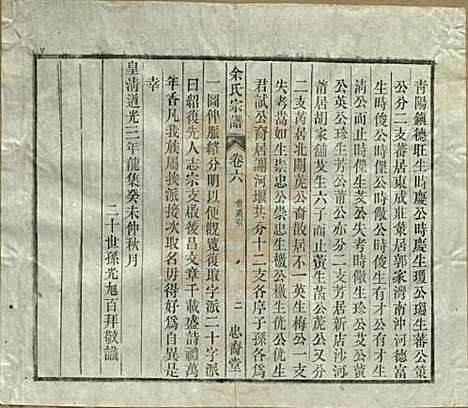 青陽鎮德旺生時慶公時慶生瓊公瓊生蕃公策
公分二支蕃居東咸莊棻居郭家灣南沖河德富
生時俊公時傑公時儆公時俊公止時儆生
清公而止時傑生英公時儆生珍公艾公黄
公英公珍生芳公莆公亦分二支芳居新店沙河
莆居胡家舖艾生六子而止黄生芮公茂公又分
二支芮居北關茂公散居不一英生梅公一支
失考嵩如生崇忠公崇忠生檄公檄生侊公侊生
君試公裔居謝河堰共分十二支各序生庚於後
余氏宗譜
卷六
二
忠裔堂
一圖俾脈絡分明以便觀覽復取字派二十字派
曰紹復先人志宗支啟吕文章千載盛壽禮萬
年香凡我族屬挨派接次取名毋得好為自異是
幸
皇清道光三年龍集癸未仲秋月
二十世孫光旭百拜敬識